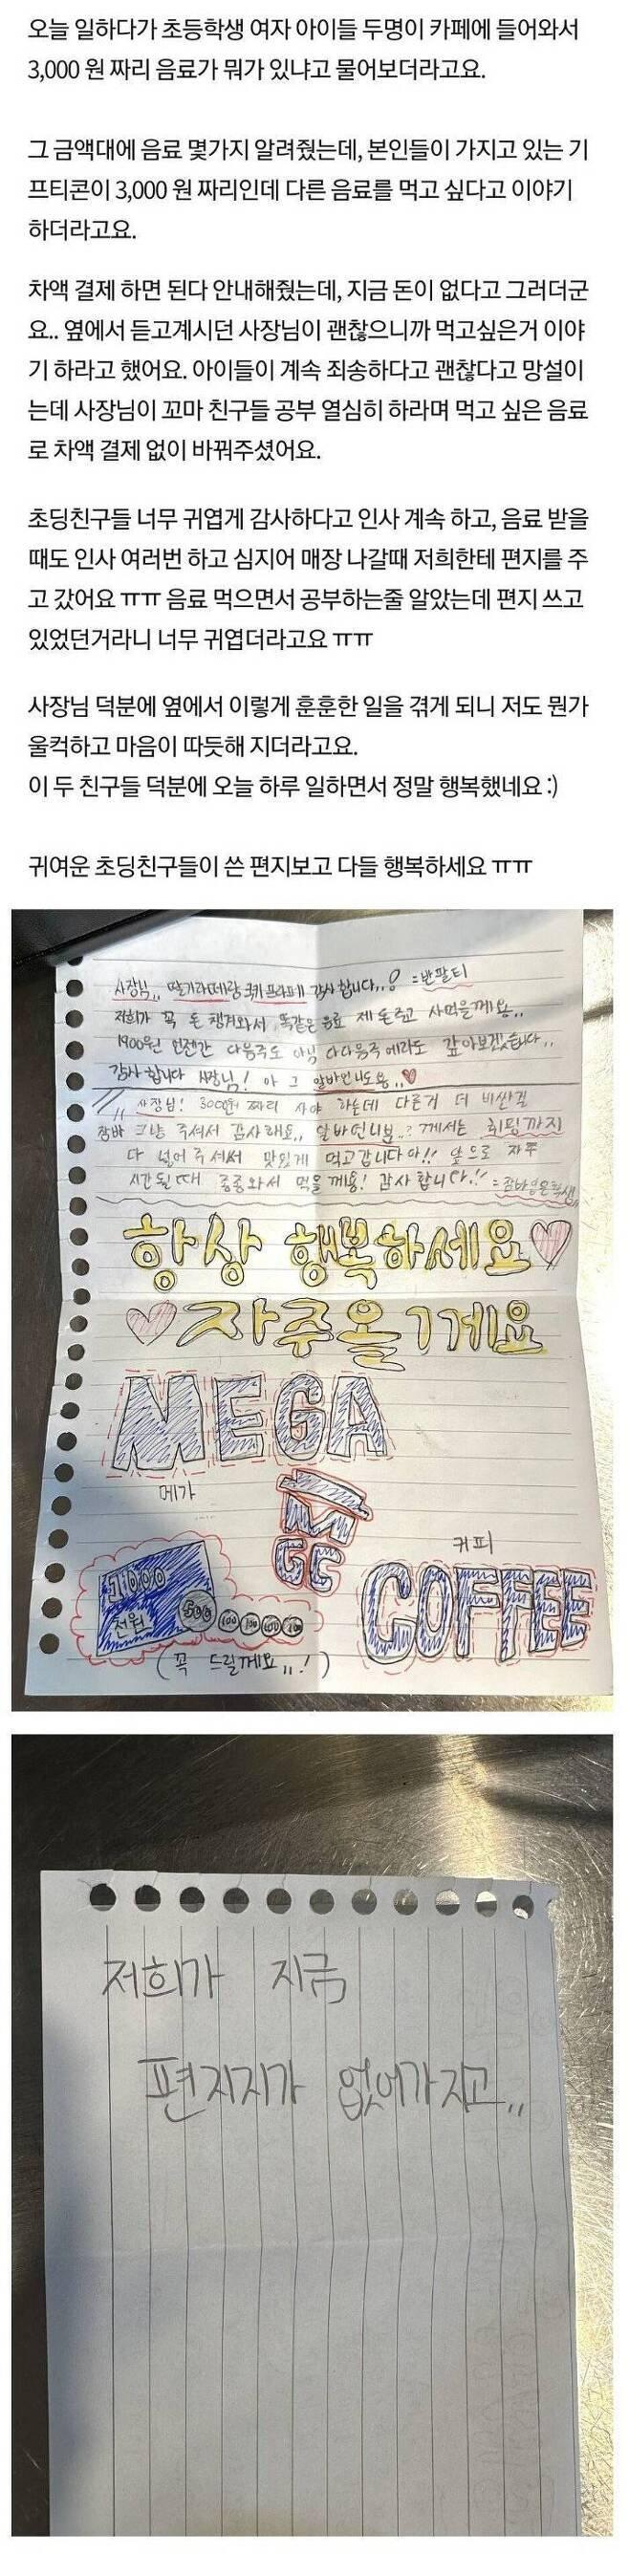 오늘 일하다가 초등학생 여자 아이들 두명이 카페에 들어와서
3,000 원 짜리 음료가 뭐가 있냐고 물어보더라고요.
그 금액대에 음료 몇가지 알려줬는데, 본인들이 가지고 있는 기
프티콘이 3,000 원 짜리인데 다른 음료를 먹고 싶다고 이야기
하더라고요.
차액 결제 하면 된다 안내해줬는데, 지금 돈이 없다고 그러더군
요.. 옆에서 듣고계시던 사장님이 괜찮으니까 먹고싶은거 이야
기 하라고 했어요. 아이들이 계속 죄송하다고 괜찮다고 망설이
는데 사장님이 꼬마 친구들 공부 열심히 하라며 먹고 싶은 음료
로 차액 결제 없이 바꿔주셨어요.
초딩친구들 너무 귀엽게 감사하다고 인사 계속 하고, 음료 받을
때도 인사 여러번 하고 심지어 매장 나갈때 저희한테 편지를 주
고 갔어요 ㅠㅠ 음료 먹으면서 공부하는줄 알았는데 편지 쓰고
있었던거라니 너무 귀엽더라고요 ㅠㅠ
사장님 덕분에 옆에서 이렇게 훈훈한 일을 겪게 되니 저도 뭔가
울컥하고 마음이 따듯해 지더라고요.
이 두 친구들 덕분에 오늘 하루 일하면서 정말 행복했네요 :)
귀여운 초딩친구들이 쓴 편지보고 다들 행복하세요 ㅠㅠ
사장님,, 딸기라떼랑 쿠키프라페 감사합니다..! =반팔티
저희가 꼭 돈 챙겨와서 똑같은 음료 제 돈주고 사먹을께요..
1900원 언젠간 다음주도 아닌 다다음주에라도 갚아보겠습니다..
감사합니다 사장님! 아 그 알바언니도용..♥
사장님! 3000원 짜리 사야 하는데 다른거 더 비싼걸
그냥 주셔서 감사해요.. 알바언니분..? 께서는 휘핑까지
다 넣어주셔서 맛있게 먹고갑니다아!! 앞으로 자주
시간될때 종종와서 먹을께용! 감사합니다!!
항상 행복하세요♡
♡자주올게요
MEGA
메가
M
GC
커피
COFFEE
1000
천원
500 100 100 100 100
(꼭 드릴께요,,!)
저희가 지금
편지지가 없어가지고..